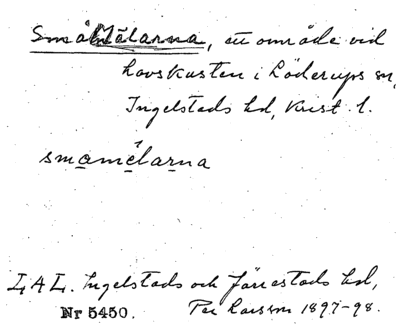 Småmålarna, ett område vid
havskusten i Löderups sn,
Ingelstads hd, Krist. l.
smamelarna
L A L. Ingelstads och Järrestads hd,
Nr 5450. Per Larsson 1897-98.